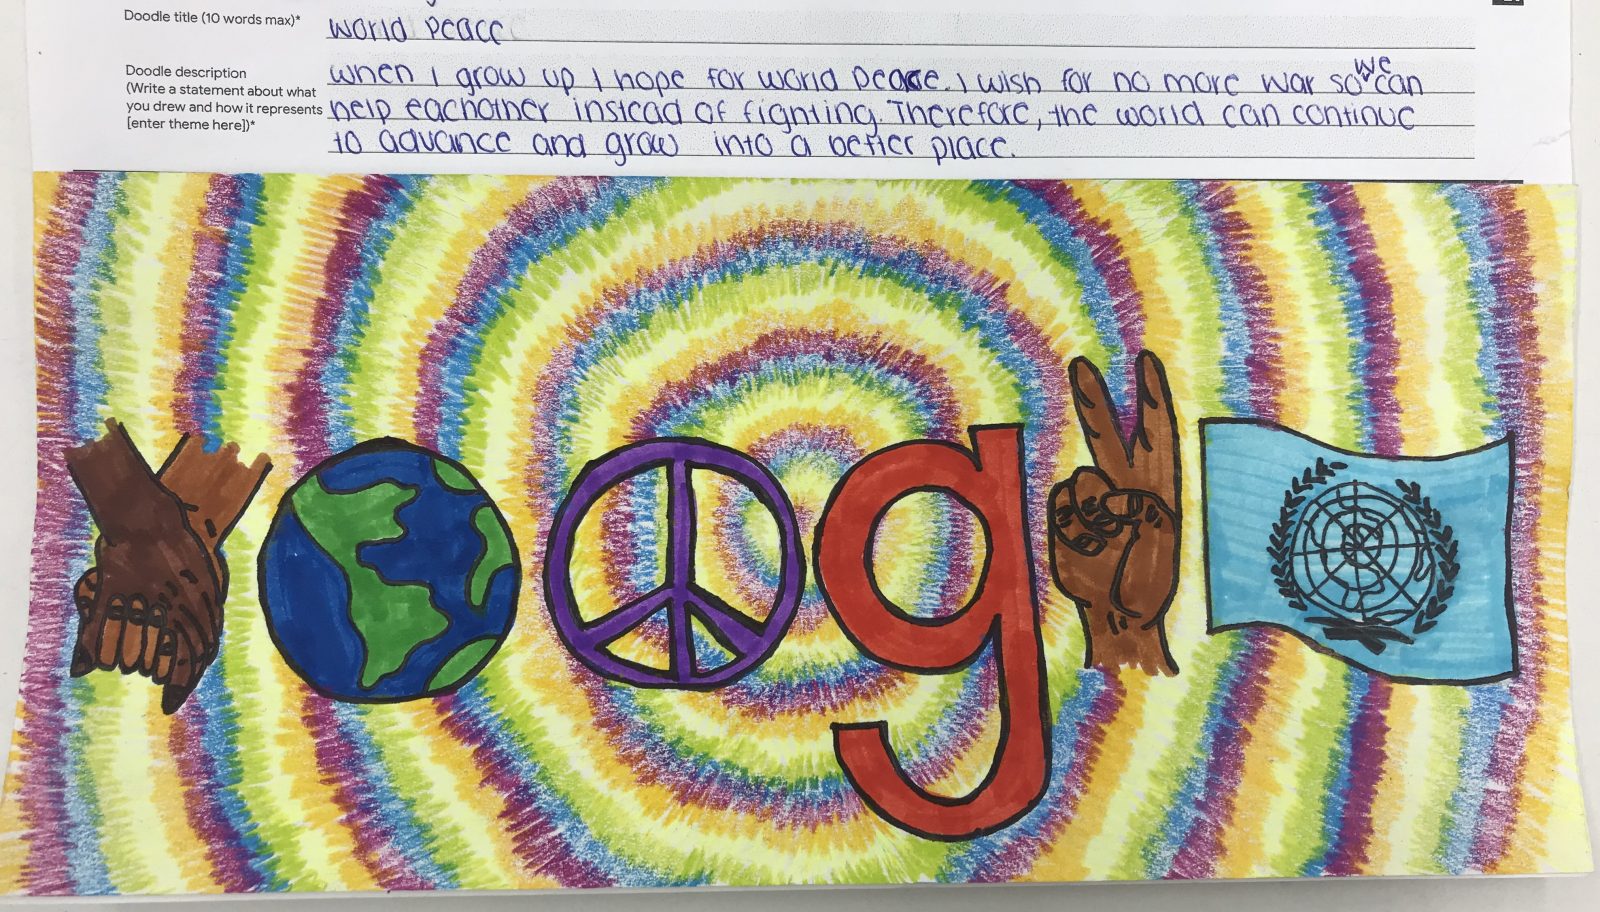 Doodle title (10 words max)*
World Peace
Doodle description
(Write a statement about what
you drew and how it represents
[enter theme here])*
When I grow up I hope for world peace. I wish for no more war so we can
help eachother instead of fighting. Therefore, the world can continue
to advance and grow into a better place.
g